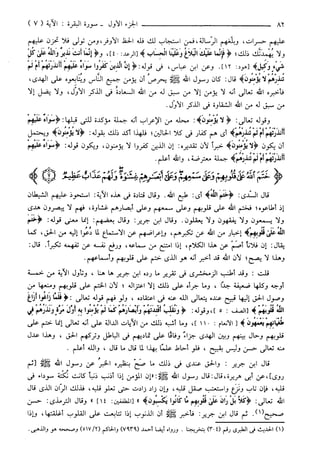 ٨٢ الجزء الأول - سورة البقرة: الآية (٧)
عليهم حسرات، وبلغهم الرسالة، فمن استجاب لك فله الحظ الأوفر، ومن تولى فلا تحزن عليهم
ولا يهمدنك ذلك؛ ﴿فإنما عليك البلاغ وعلينا الحساب﴾ [الرعد: ٤٠]، و﴿إنما أنت نذير والله على كل
شيء وكيل﴾ [هود: ١٢]. وعن ابن عباس، في قوله: ﴿إن الذين كفروا سواء عليهم أأنذرتهم أم لم
تنذرهم لا يؤمنون﴾ قال: كان رسول الله ﷺ يحرص أن يؤمن جميع الناس ويتابعوه على الهدى،
فأخبره الله تعالى أنه لا يؤمن إلا من سبق له من الله السعادة في الذكر الأول، ولا يضل إلا
من سبق له من الله الشقاوة في الذكر الأول.
وقوله تعالى: ﴿لا يؤمنون﴾ محله من الإعراب أنه جملة مؤكدة للتي قبلها: ﴿سواء عليهم
أأنذرتهم أم لم تنذرهم﴾ أي هم كفار في كلا الحالين؛ فلهذا أكد ذلك بقوله: ﴿لا يؤمنون﴾ ويحتمل
أن يكون ﴿لا يؤمنون﴾ خبراً لأن تقديره: إن الذين كفروا لا يؤمنون، ويكون قوله: ﴿سواء عليهم
أأنذرتهم أم لم تنذرهم﴾ جملة معترضة، والله أعلم.
﴿ختم الله على قلوبهم وعلى سمعهم وعلى أبصارهم غشاوة ولهم عذاب عظيم﴾
قال السدي: ﴿ختم الله﴾ أي: طبع الله. وقال قتادة في هذه الآية: استحوذ عليهم الشيطان
إذ أطاعوه؛ فختم الله على قلوبهم وعلى سمعهم وعلى أبصارهم غشاوة، فهم لا يبصرون هدى
ولا يسمعون ولا يفقهون ولا يعقلون. وقال ابن جرير: وقال بعضهم: إنما معنى قوله: ﴿ختم
الله على قلوبهم﴾ إخبار من الله عن تكبرهم، وإعراضهم عن الاستماع لما دعوا إليه من الحق، كما
يقال: إن فلاناً أصم عن هذا الكلام، إذا امتنع من سماعه، ورفع نفسه عن تفهمه تكبراً. قال:
وهذا لا يصح؛ لأن الله قد أخبر أنه هو الذي ختم على قلوبهم وأسماعهم.
قلت: وقد أطنب الزمخشري في تقرير ما رده ابن جرير ها هنا، وتأول الآية من خمسة
أوجه وكلها ضعيفة جداً، وما جرأه على ذلك إلا اعتزاله؛ لأن الختم على قلوبهم ومنعها من
وصول الحق إليها قبيح عنده يتعالى الله عنه في اعتقاده، ولو فهم قوله تعالى: ﴿فلما زاغوا أزاغ
الله قلوبهم﴾ [الصف: ٥]، وقوله: ﴿ونقلب أفئدتهم وأبصارهم كما لم يؤمنوا به أول مرة ونذرهم في
طغيانهم يعمهون﴾ [الأنعام: ١١٠]، وما أشبه ذلك من الآيات الدالة على أنه تعالى إنما ختم على
قلوبهم وحال بينهم وبين الهدى جزاءً وفاقاً على تماديهم في الباطل وتركهم الحق، وهذا عدل
منه تعالى حسن وليس بقبيح، فلو أحاط علماً بهذا لما قال ما قال، والله أعلم.
قال ابن جرير: والحق عندي في ذلك ما صح بنظيره الخبر عن رسول الله ﷺ [ثم
روى]، عن أبي هريرة، قال: قال رسول الله ﷺ: «إن المؤمن إذا أذنب ذنباً كانت نكتة سوداء في
قلبه، فإن تاب ونزع واستعتب صقل قلبه، وإن زاد زادت حتى تعلو قلبه، فذلك الران الذي قال
الله تعالى: ﴿كلا بل ران على قلوبهم ما كانوا يكسبون﴾» [المطففين: ١٤] وقال الترمذي: حسن
صحيح(١). ثم قال ابن جرير: فأخبر ﷺ أن الذنوب إذا تتابعت على القلوب أغلفتها، وإذا
(١) الحديث في الطبري رقم (٣٠٤) بتخريجنا. ورواه أيضاً أحمد (٧٩٣٩) والحاكم (٥١٧/٢) وصححه هو والذهبي.